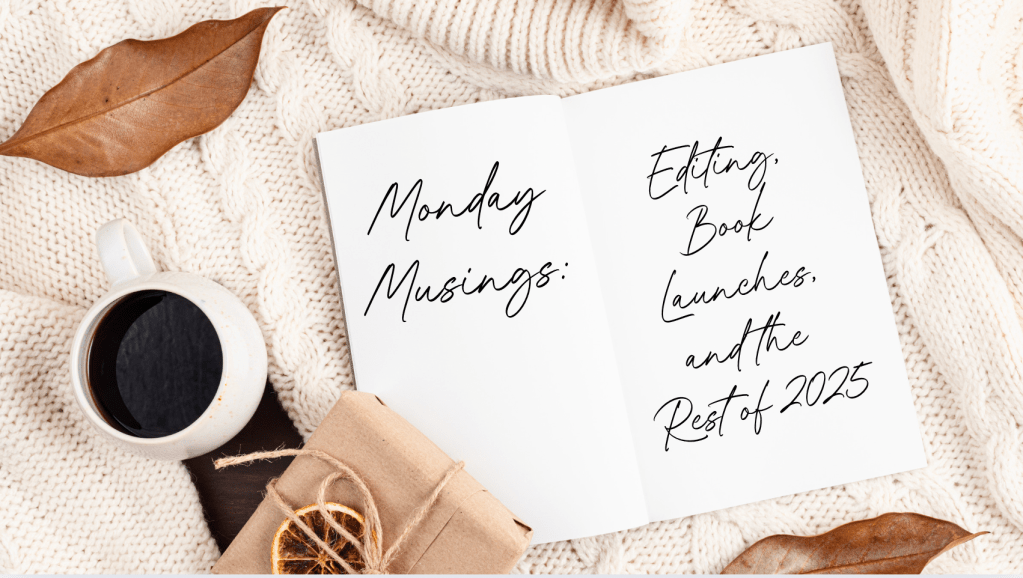 Monday
Musings:
Editing,
Book
Launches,
and the
Rest of 2025